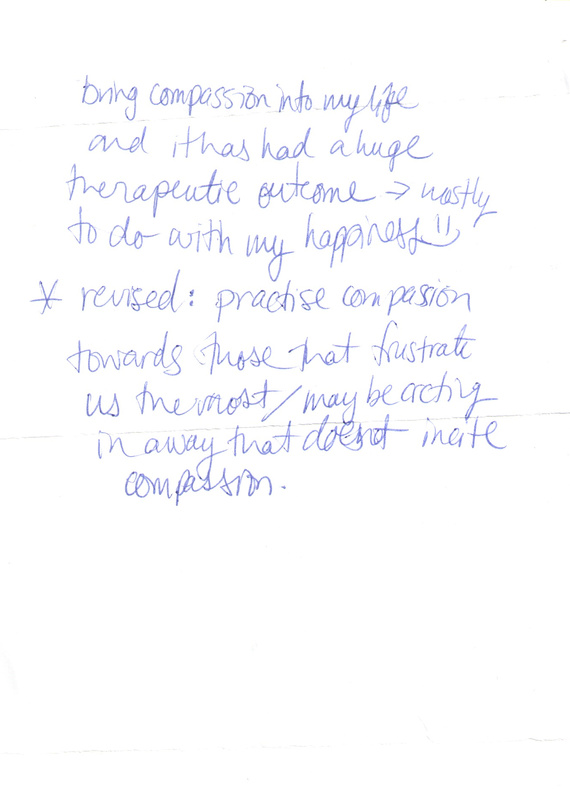 bring compassion into my life
and it has had a huge
therapeutic outcome → mostly
to do with my happiness :)
* revised: practise compasion
towards those that frustrate
us the most / may be acting
in a way that doesnt incite
compassion.